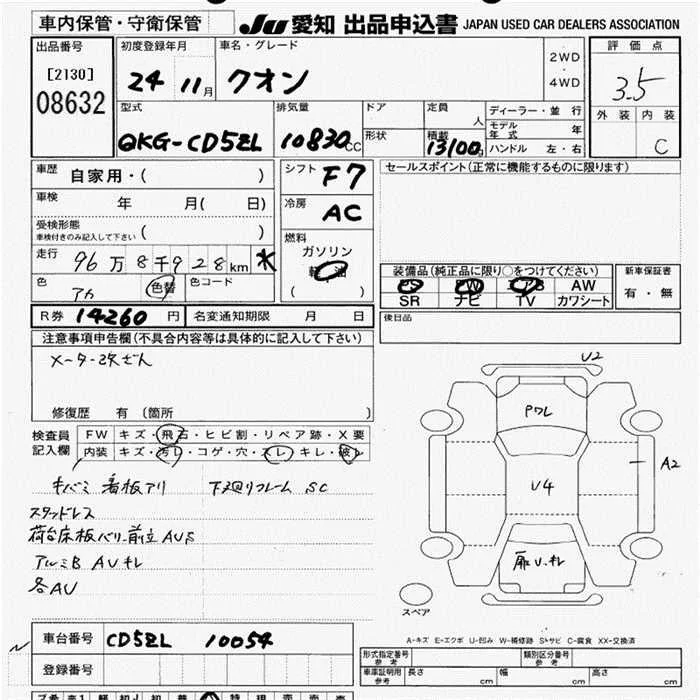 車内保管・守衛保管 JU 愛知 出品申込書 JAPAN USED CAR DEALERS ASSOCIATION
出品番号
[2130]
08632
初度登録年月
24 11月
車名・グレード
クオン
2WD
・
4WD
評価点
3.5
外装 内装
C
型式
QKG-CD5ZL
排気量
10830cc
ドア
形状
定員
人
積載
13100
ディーラー・並行
モデル年式 年
ハンドル 左・右
車歴
自家用・( )
車検
年 月( 日)
受検形態
車検付きのみ記入して下さい ( )
走行
96万8千928km
色
アカ
色替
色コード
シフト F7
冷房 AC
燃料
ガソリン
軽油
( )
セールスポイント(正常に機能するものに限ります)
装備品(純正品に限り○をつけてください)
PS PW AB AW
SR ナビ TV カワシート
新車保証書
有・無
後日品
R券 14260円 名変通知期限 月 日
注意事項申告欄(不具合内容等は具体的に記入して下さい)
メーター改ざん
修復歴 有 (箇所 )
検査員
記入欄
FW キズ・飛石・ヒビ割・リペア跡・X要
内装 キズ・汚レ・コゲ・穴・スレ・キレ・破レ
キバミ 看板アリ 下廻りフレーム SC
スタッドレス
荷台床板バリ 前立AUS
アルミB AUキレ
各AU
U2
PWL
U4
A2
扉U.キレ
スペア
A-キズ E-エクボ U-凹み W-補修跡 S-サビ C-腐食 XX-交換済
車台番号 CD5ZL 10054
登録番号
形式指定番号
参考
類別区分番号
参考
車庫証明用
参考
長さ cm 幅 cm 高さ cm